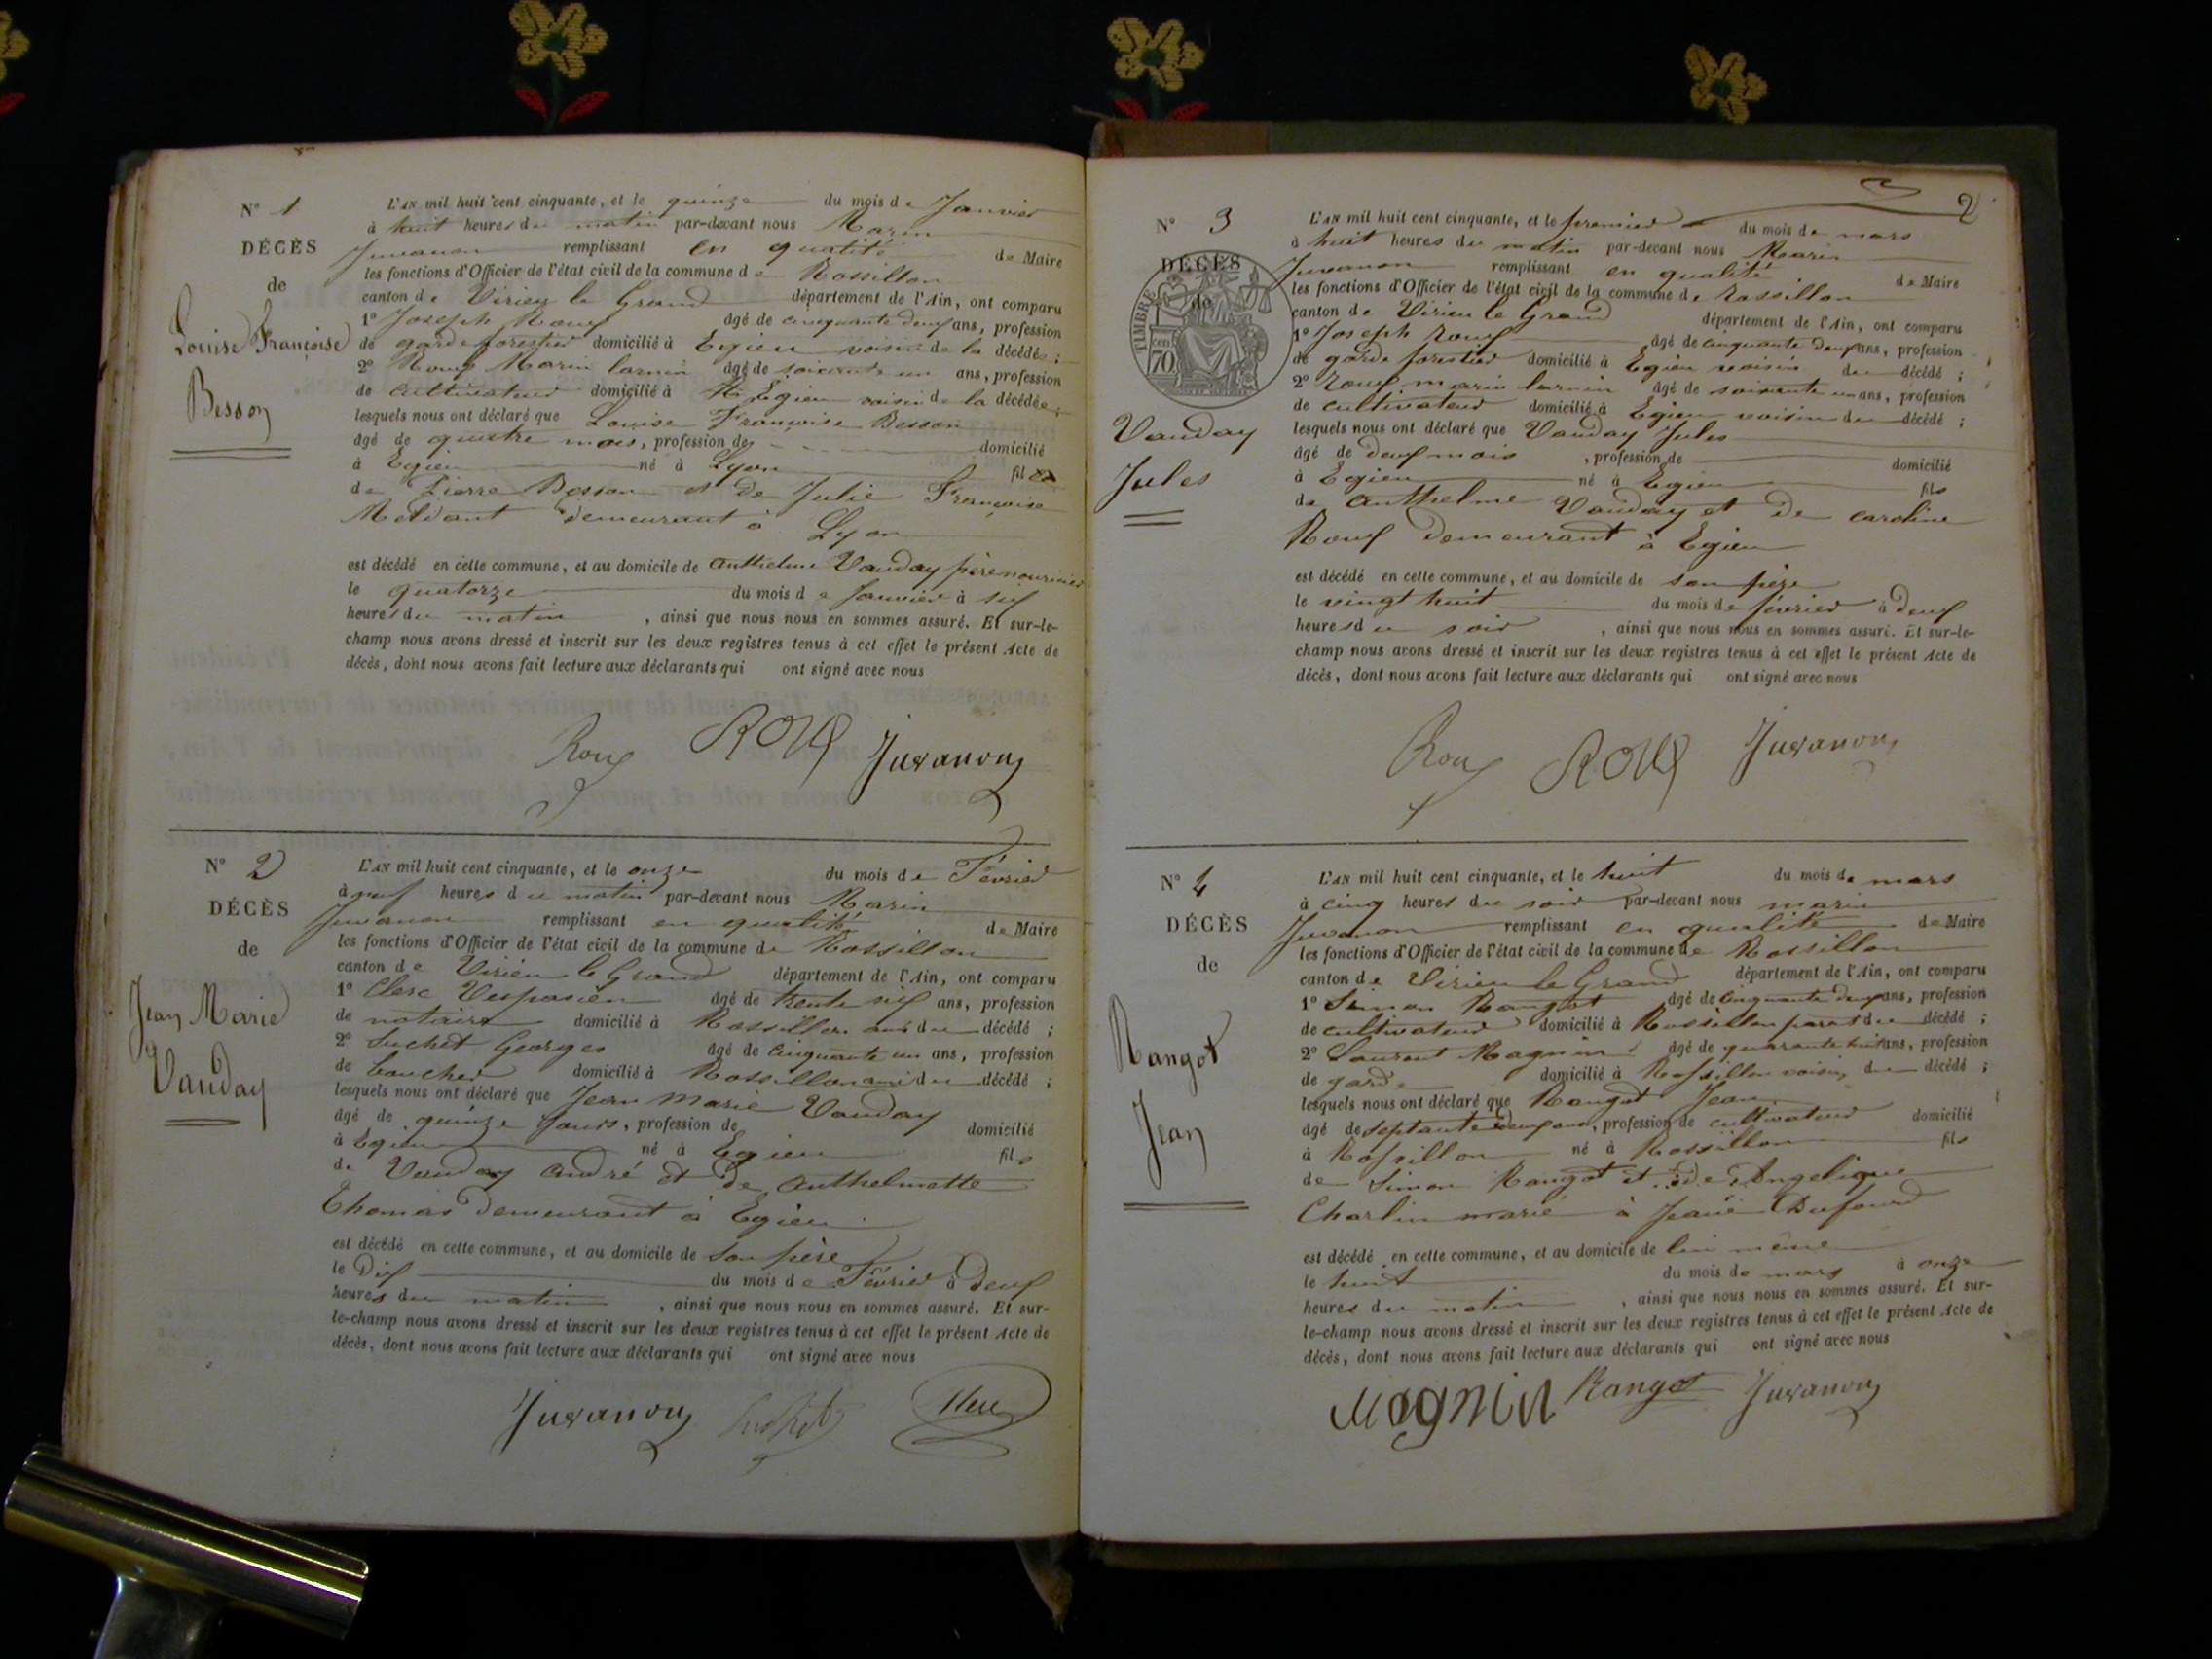 N° 1
DÉCÈS
de
Louise Françoise
Besson
L'AN mil huit cent cinquante, et le quinze du mois de Janvier
à huit heures du matin par-devant nous Marin
Juvanon remplissant en qualité de Maire
les fonctions d'Officier de l'état civil de la commune de Rossillon
canton de Virieu le Grand département de l'Ain, ont comparu
1° Joseph Roux âgé de cinquante deux ans, profession
de garde forestier domicilié à Egieu voisin de la décédée ;
2° Roux Marin âgé de soixante un ans, profession
de cultivateur domicilié à Egieu voisin de la décédée ;
lesquels nous ont déclaré que Louise Françoise Besson
âgé de quatre mois, profession de domicilié
à Egieu né à Lyon fille
de Pierre Besson et de Julie Françoise
demeurant à Lyon
est décédé en cette commune, et au domicile de Anthelme Vauday père nourricier
le quatorze du mois de Janvier à six
heures du matin , ainsi que nous nous en sommes assuré. Et sur-le-
champ nous avons dressé et inscrit sur les deux registres tenus à cet effet le présent Acte de
décès, dont nous avons fait lecture aux déclarants qui ont signé avec nous
Roux ROUX Juvanon
N° 2
DÉCÈS
de
Jean Marie
Vauday
L'AN mil huit cent cinquante, et le onze du mois de Février
à neuf heures du matin par-devant nous Marin
Juvanon remplissant en qualité de Maire
les fonctions d'Officier de l'état civil de la commune de Rossillon
canton de Virieu le Grand département de l'Ain, ont comparu
1° Clerc Vespasien âgé de trente six ans, profession
de notaire domicilié à Rossillon ami du décédé ;
2° Suchet Georges âgé de cinquante un ans, profession
de boucher domicilié à Rossillon ami du décédé ;
lesquels nous ont déclaré que Jean Marie Vauday
âgé de quinze jours, profession de domicilié
à Egieu né à Egieu fils
de Vauday André et de Anthelmette
Thomas demeurant à Egieu
est décédé en cette commune, et au domicile de son père
le Dix du mois de Février à deux
heures du matin , ainsi que nous nous en sommes assuré. Et sur-
le-champ nous avons dressé et inscrit sur les deux registres tenus à cet effet le présent Acte de
décès, dont nous avons fait lecture aux déclarants qui ont signé avec nous
Juvanon Suchet Clerc
2
N° 3
DÉCÈS
de
TIMBRE
70
Vauday
Jules
L'AN mil huit cent cinquante, et le premier du mois de mars
à huit heures du matin par-devant nous Marin
Juvanon remplissant en qualité de Maire
les fonctions d'Officier de l'état civil de la commune de Rossillon
canton de Virieu le Grand département de l'Ain, ont comparu
1° Joseph Roux âgé de cinquante deux ans, profession
de garde forestier domicilié à Egieu voisin du décédé ;
2° Roux marin âgé de soixante un ans, profession
de cultivateur domicilié à Egieu voisin du décédé ;
lesquels nous ont déclaré que Vauday Jules
âgé de deux mois , profession de domicilié
à Egieu né à Egieu fils
de Anthelme Vauday et de caroline
Roux demeurant à Egieu
est décédé en cette commune, et au domicile de son père
le vingt huit du mois de février à deux
heures du soir , ainsi que nous nous en sommes assuré. Et sur-le-
champ nous avons dressé et inscrit sur les deux registres tenus à cet effet le présent Acte de
décès, dont nous avons fait lecture aux déclarants qui ont signé avec nous
Roux ROUX Juvanon
N° 4
DÉCÈS
de
Rangot
Jean
L'AN mil huit cent cinquante, et le huit du mois de mars
à cinq heures du soir par-devant nous marin
Juvanon remplissant en qualité de Maire
les fonctions d'Officier de l'état civil de la commune de Rossillon
canton de Virieu le Grand département de l'Ain, ont comparu
1° Simon Rangot âgé de cinquante deux ans, profession
de cultivateur domicilié à Rossillon parent du décédé ;
2° Laurent Magnin âgé de quarante huit ans, profession
de garde domicilié à Rossillon voisin du décédé ;
lesquels nous ont déclaré que Rangot Jean
âgé de septante deux ans, profession de cultivateur domicilié
à Rossillon né à Rossillon fils
de Simon Rangot et de Angelique
Charlin marié à Dufour
est décédé en cette commune, et au domicile de lui même
le huit du mois de mars à onze
heures du matin , ainsi que nous nous en sommes assuré. Et sur-
le-champ nous avons dressé et inscrit sur les deux registres tenus à cet effet le présent Acte de
décès, dont nous avons fait lecture aux déclarants qui ont signé avec nous
Magnin Rangot Juvanon